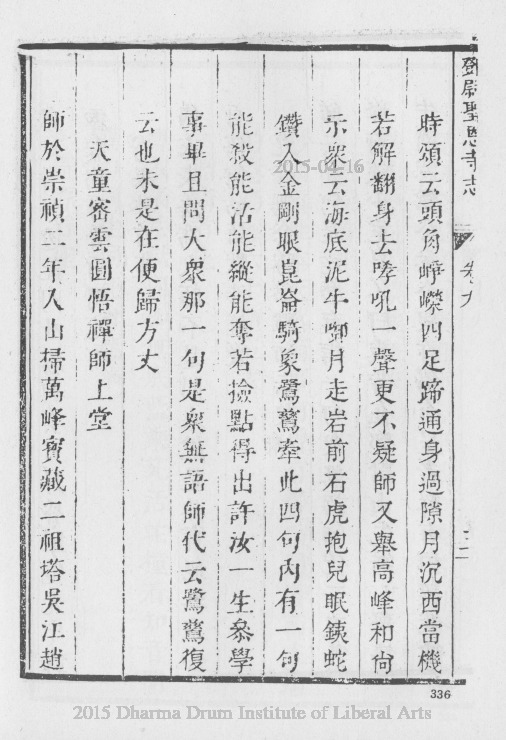 鄧尉聖恩寺志 卷九 二
時頌云頭角崢嶸四足蹄通身過隙月沉西當機
若解翻身去哮吼一聲更不疑師又舉高峰和尚
示衆云海底泥牛啣月走岩前石虎抱兒眠鉄蛇
鑽入金剛眼崑崙騎象鷺鷥牽此四句內有一句
能殺能活能縱能奪若撿點得出許汝一生叅學
事畢且問大衆那一句是衆無語師代云鷺鷥復
云也未是在便歸方丈
天童密雲圓悟禪師上堂
師於崇禎二年入山掃萬峰寶藏二祖塔吳江趙
2015-04-16
336
2015 Dharma Drum Institute of Liberal Arts